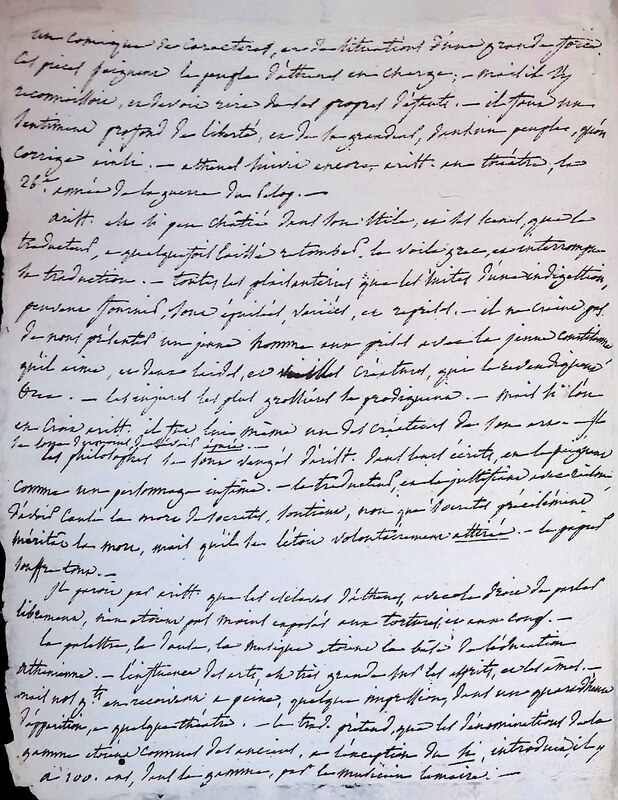 un comique de caracteres, et de situations d'une grande force.
Ces pieces peignent le peuple d'athenes en charge; — mais il s'y
reconnessoit, et devoit rire de ses propres défauts. — il faut un
sentiment profond de liberté, et de la grandeur, dans un peuple, qu'on
corrige ainsi. — athenes suivre encore, arist. au théatre, la
26e. année de la guerre du Pelop. —
arist. est si peu châtié dans son stile, et ses scenes, que le
traducteur, a quelquefois laissé retomber le voile grec, et interrompu
sa traduction. — toutes les plaisanteries que les suites d'une indigestion,
peuvent fournir, sont épuisées, variées, et reprises. — il ne craint pas
de nous présenter un jeune homme aux prises avec la jeune
qu'il aime, et deux laides, et vieilles créatures, qui le revendiquent
— les injures les plus grossieres se prodiguent. — mais si l'on
en croit arist. il fut lui même un des créateurs de son art. — il
les philosophes se sont vengés d'arist. dans leurs écrits, en le peignant
comme un personnage infâme. — le traducteur, en le justifiant avec raison,
d'avoir causé la mort de Socrate, soutient, non que Socrate précisément
méritât la mort, mais qu'il se l'étoit volontairement attirée. — le papier
souffre tout. —
Il paroit par arist. que les esclaves d'athenes, avec le droit de parler
librement, n'en étoient pas moins exposés aux tortures, et aux coups. —
la palestre, la danse, la musique étoient la base de l'éducation
athénienne. — l'influence des arts, est très grande sur les esprits, et les ames. —
mais nos gens en recoivent a peine, quelque impression, dans un quart d'heure
d'apparition, a quelque théatre. — le trad. prétend, que les dénominations de la
gamme étoient connues des anciens, a l'exception du si, introduit, il y
a 100. ans, dans la gamme, par le musicien Lemaire. —